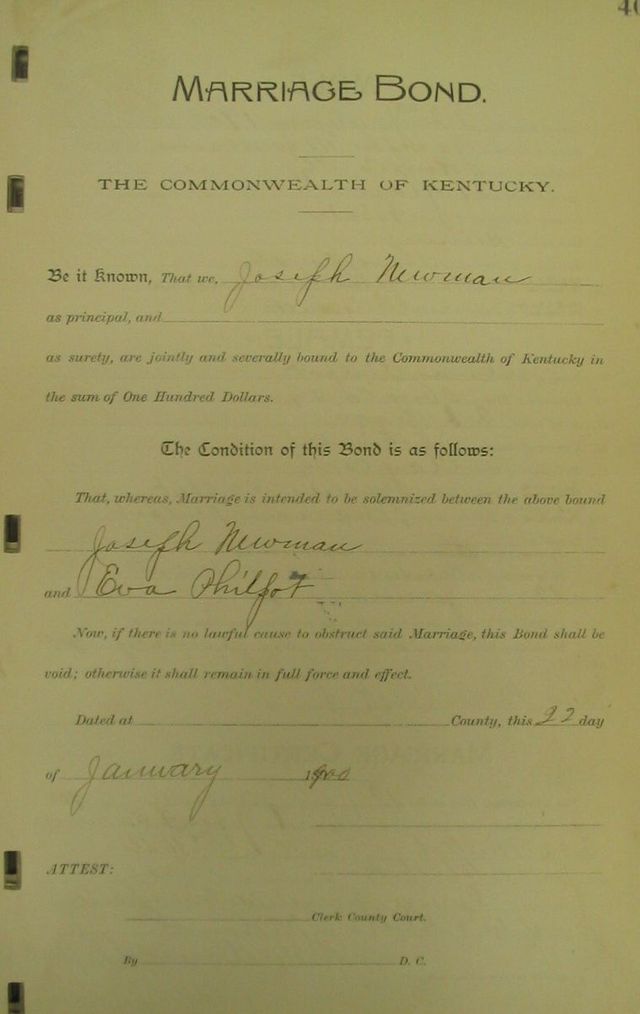 40
MARRIAGE BOND.
THE COMMONWEALTH OF KENTUCKY.
Be it Known, That we, Joseph Newman
as principal, and
as surety, are jointly and severally bound to the Commonwealth of Kentucky in
the sum of One Hundred Dollars.
The Condition of this Bond is as follows:
That, whereas, Marriage is intended to be solemnized between the above bound
Joseph Newman
and Eva Philpot
Now, if there is no lawful cause to obstruct said Marriage, this Bond shall be
void; otherwise it shall remain in full force and effect.
Dated at County, this 22 day
of January 1900
ATTEST:
Clerk County Court.
By D. C.